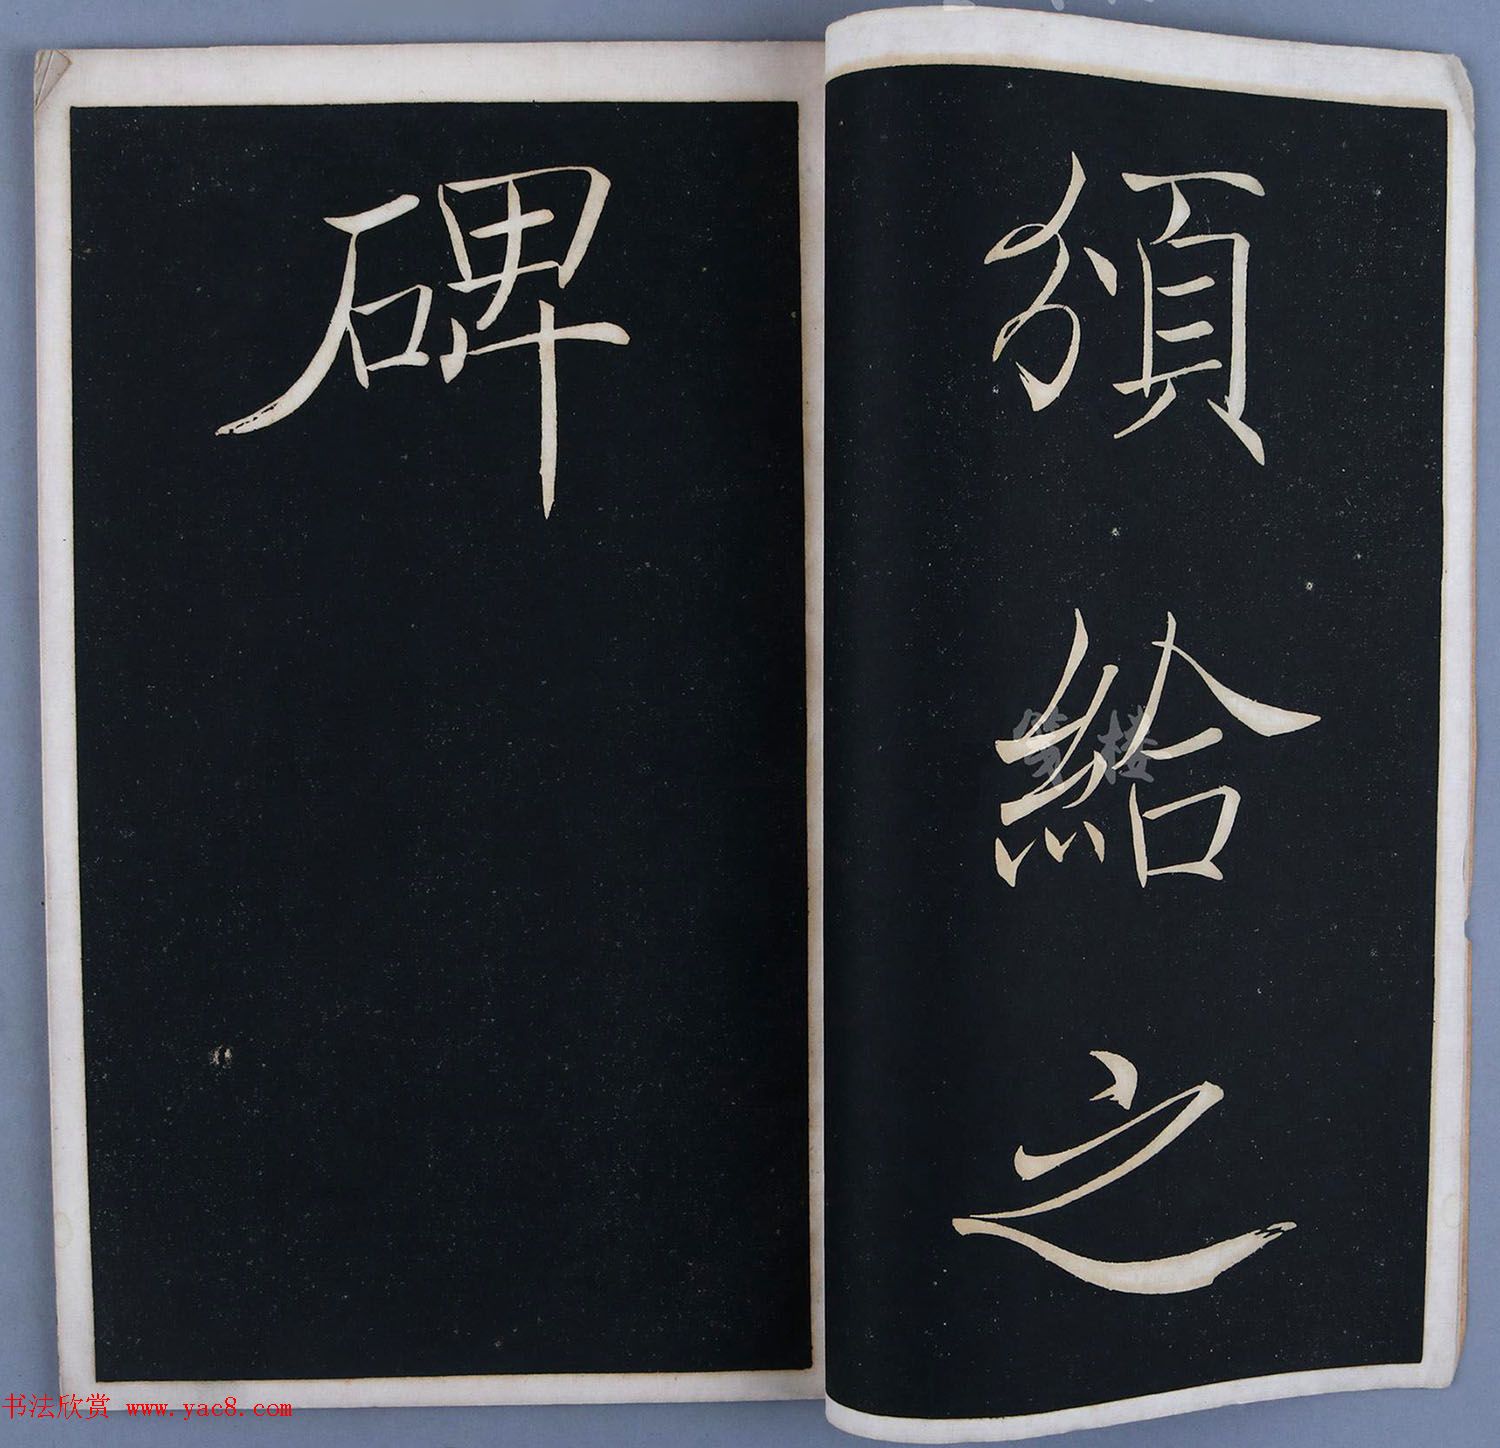 頒給之
碑
书法欣赏 www.yac8.com